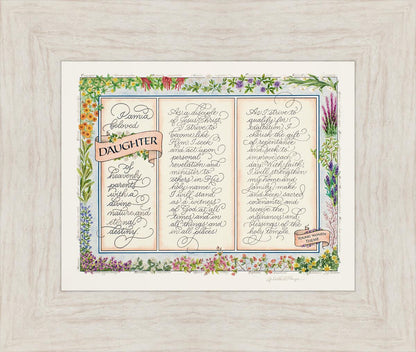 I am a
beloved
DAUGHTER
of
heavenly
parents,
with a
divine
nature and
eternal
destiny.
As a disciple
of Jesus Christ,
I strive to
become like
Him. I seek
and act upon
personal
revelation and
minister to
others in His
holy name.
I will stand
as a witness
of God at all
times and in
all things and
in all places.
As I strive to
qualify for
exaltation, I
cherish the gift
of repentance
and seek to
improve each
day. With faith,
I will strengthen
my home and
family, make
and keep sacred
covenants, and
receive the
ordinances and
blessings of the
holy temple.
YOUNG WOMEN
THEME